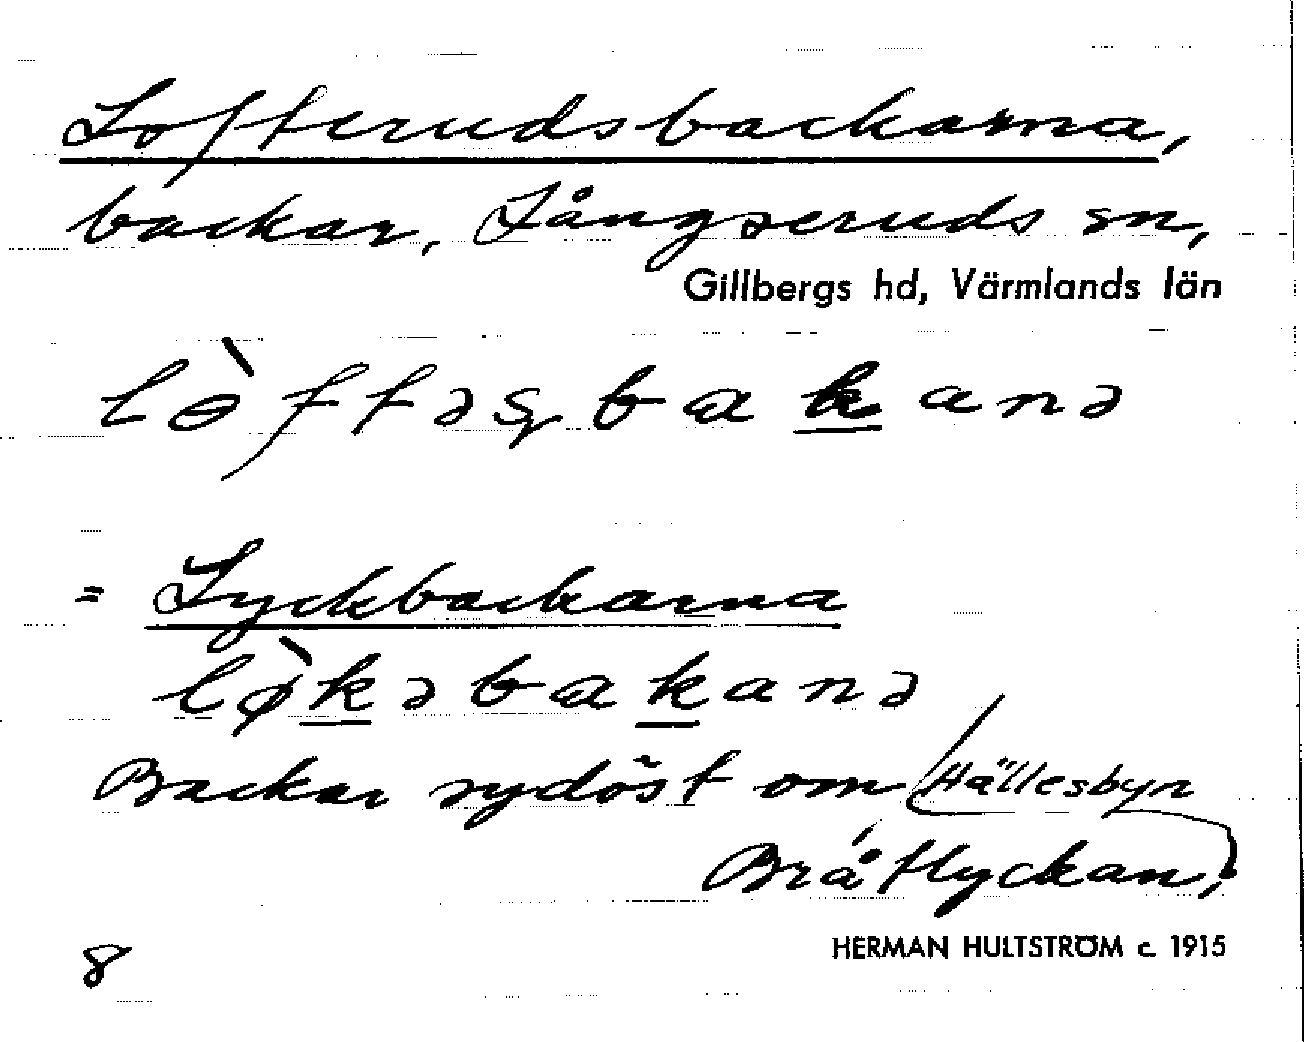 Lofterudsbackarna,
backar, Långseruds sn,
Gillbergs hd, Värmlands län
= Lyckbackarna
Backar sydöst om Hällesbyn
Bråtlyckan,
HERMAN HULTSTRÖM c. 1915
8